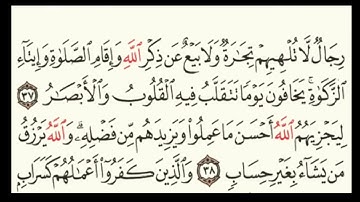 رِجَالٌ لَّا تُلْهِيهِمْ تِجَٰرَةٌ وَلَا بَيْعٌ عَن ذِكْرِ ٱللَّهِ وَإِقَامِ ٱلصَّلَوٰةِ وَإِيتَآءِ
ٱلزَّكَوٰةِ ۙ يَخَافُونَ يَوْمًا تَتَقَلَّبُ فِيهِ ٱلْقُلُوبُ وَٱلْأَبْصَٰرُ ٣٧
لِيَجْزِيَهُمُ ٱللَّهُ أَحْسَنَ مَا عَمِلُوا۟ وَيَزِيدَهُم مِّن فَضْلِهِۦ ۗ وَٱللَّهُ يَرْزُقُ
مَن يَشَآءُ بِغَيْرِ حِسَابٍ ٣٨ وَٱلَّذِينَ كَفَرُوٓا۟ أَعْمَٰلُهُمْ كَسَرَابٍۭ